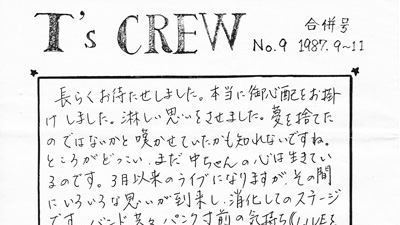 T's CREW
合併号
No.9 1987.9~11
長らくお待たせしました。本当に御心配をお掛
けしました。淋しい思いをさせました。夢を捨てた
のではないかと嘆かせていたかも知れないですね。
ところがどっこい、まだ中ちゃんの心は生きてい
るのです。3月以来のライブになりますが、その間
にいろいろな思いが到来し、消化してのステージ
です。バンド共々パンク寸前の気持ち《LIVEを